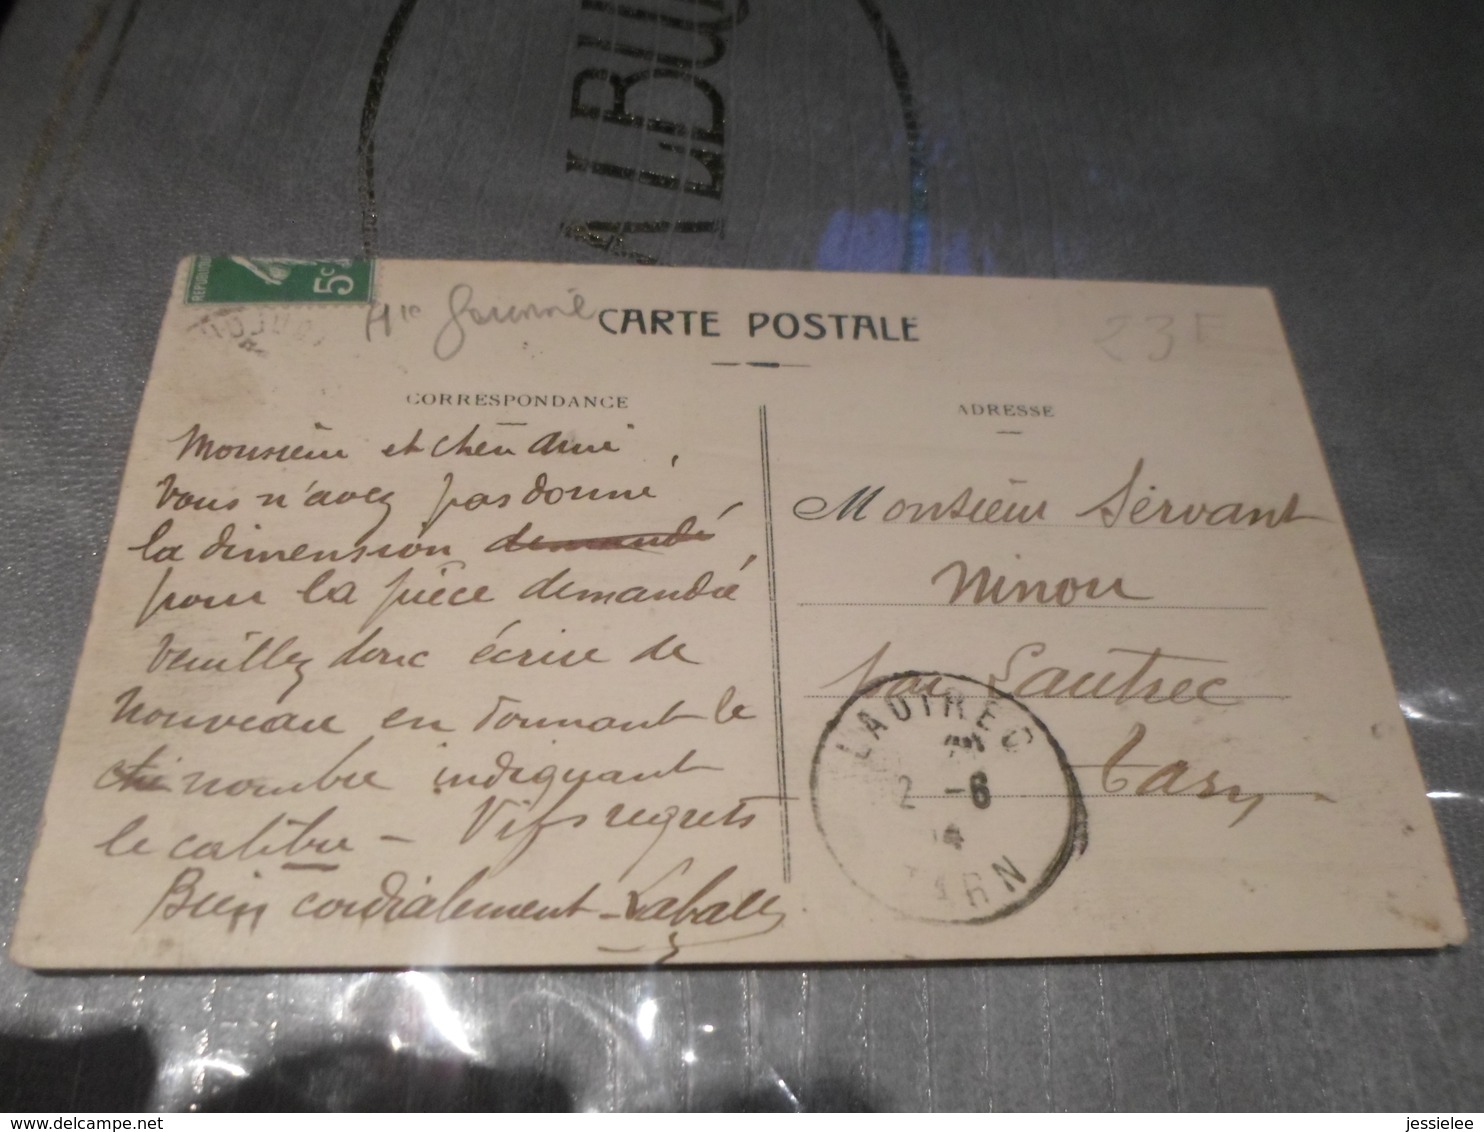 ALBUM
REPUBLIQUE
5c
Hte Garonne
CARTE POSTALE
23 F
CORRESPONDANCE
ADRESSE
Monsieur et cher ami,
Vous n'avez pas donné
la dimension demandé
pour la pièce demandée
Veuillez donc écrire de
nouveau en donnant le
nombre indiquant
le calibre - Vifs regrets
Bien cordialement
Monsieur Servant
Ninou
par Lautrec
Tarn
LAUTREC
2 -6
14
TARN
jessielee